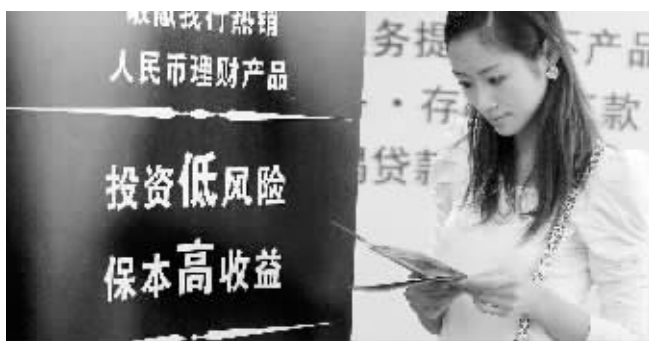 我行热销
人民币理财产品
投资低风险
保本高收益
务提
产品
·存
款
贷款